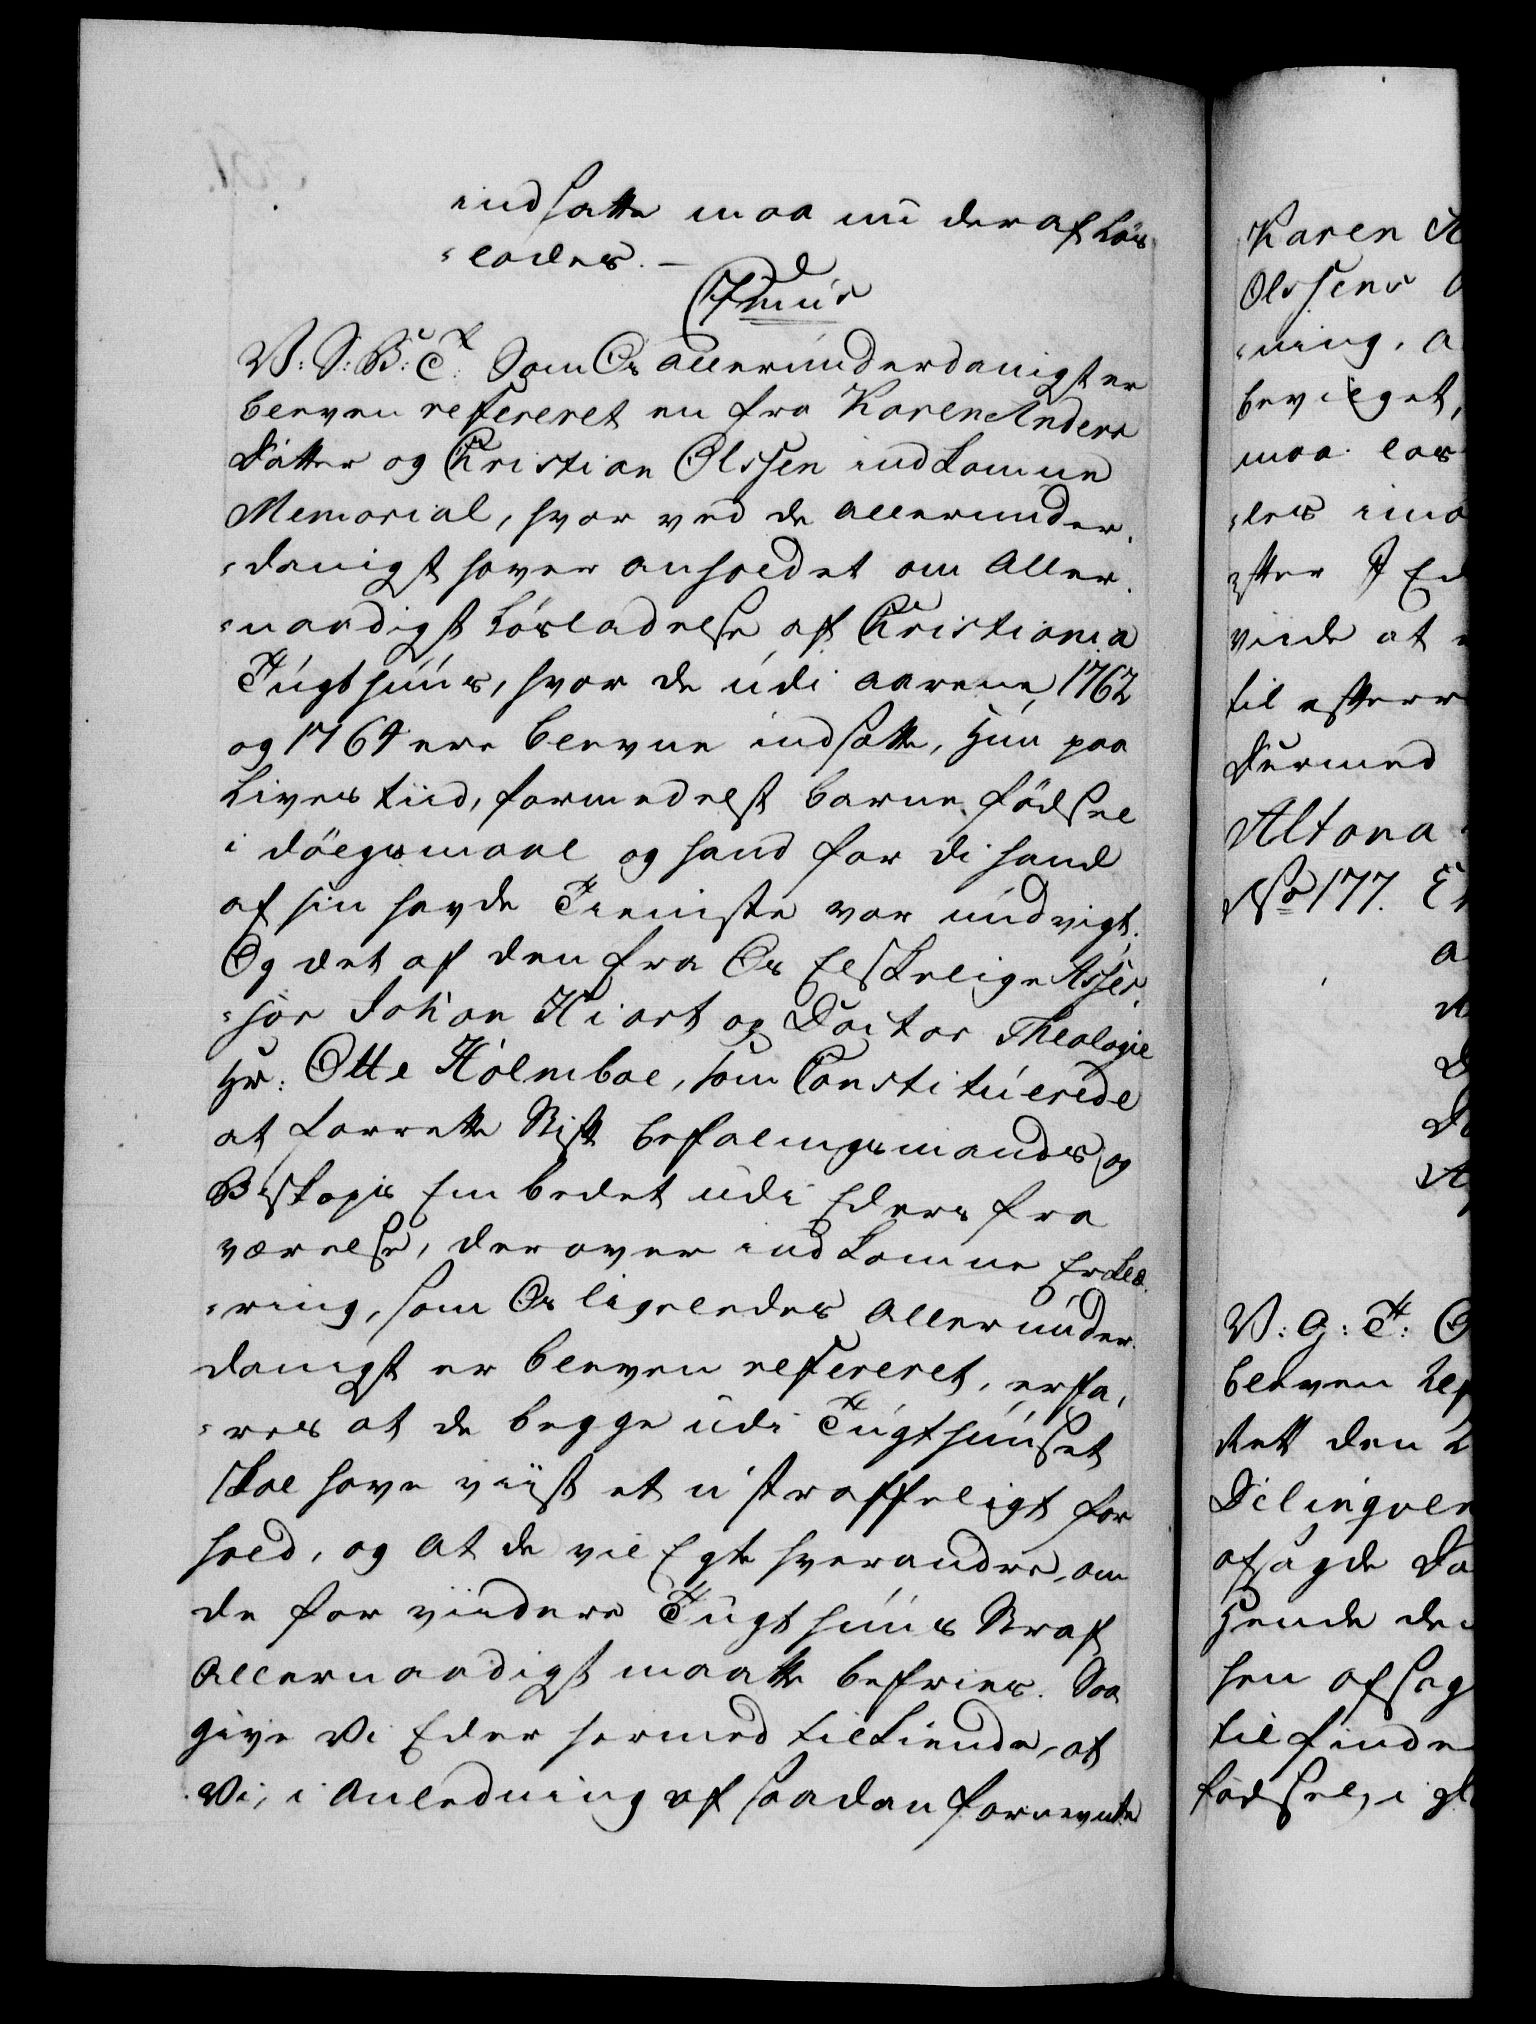 indsatte maa nu deraf løs
=lades. —
Cfmus
V: S: B: T: Som Os allerunderdanigst er
bleven refereret en fra Karen Anders
Datter og Christian Olssen indkomne
Memorial, hvor ved de allerunder,
=danigst haver anholdet om Aller,
=naadigst Løsladelse af Christiania
Tugthuus, hvor de udi aarene, 1762
og 1764 ere blevne indsatte, Hun paa
Livs tiid, formedelst barne fødsel
i dølgsmaal og hand for di hand
af sin havde Tieniste var undvigt.
Og det af den fra Os Elskelige Asses,
=sor Johan Hiort og Doctor Theologie
Hr: Otte Holmboe, som Constituerede
at forrette Stift befalingsmands og
Biskops Embedet udi Eders fra
værelse, derover indkomne Erklæ,
=ring, som Os ligeledes Allerunder,
danigst er bleven refereret, erfa,
=res at de begge udi Tugthuuset
skal have viist et u straffeligt for
hold, og at de vil Egte hverandre, om
de for viidere Tugthuus Straf
Allernaadigst maatte befries. Saa
give Vi Eder hermed tilkiende, at
Vi, i Anledning af saadan fornevnte
Karen A
Olssens
=ning, a
bevilget,
maa los
=les imo
efter
vide at
til efterr
Dermed
Altona
No 177. E
a
D
V: G: T: O
bleven Ref
Rett den
Delinqven
afsagde Do
Hende de
hen afsag
til finde
fødsel, i